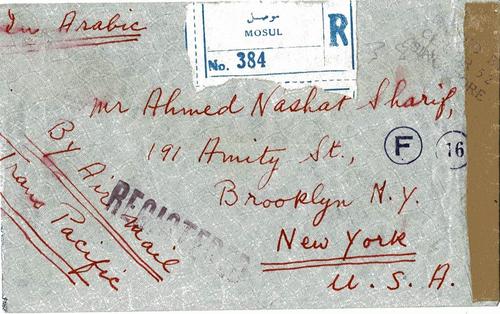 In Arabic
موصل
MOSUL
R
No. 384
Mr Ahmed Nashat Sharif,
191 Amity St.,
Brooklyn N.Y.
New York
U. S. A.
By Air Mail
Trans Pacific
REGISTERED
F
16